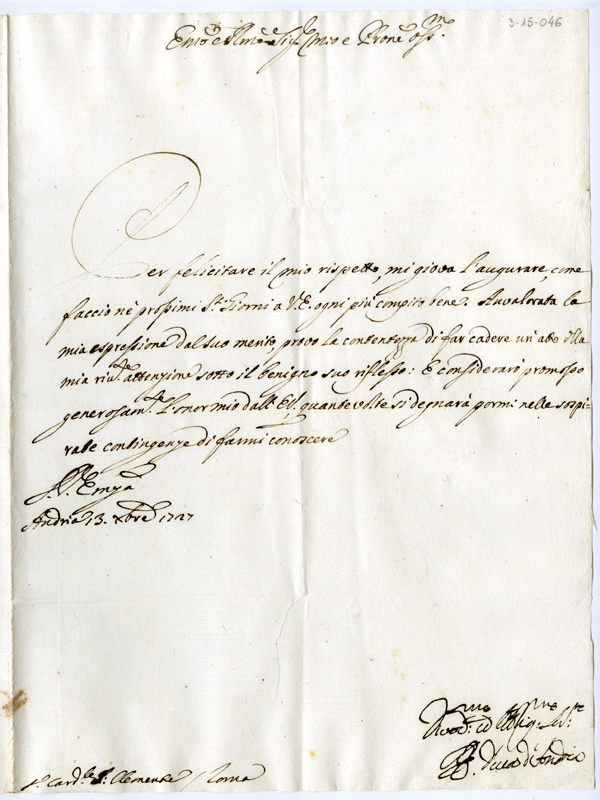 3-15-046
Em̃o e Rm̃o Sig.r mio e Prone oss.mo
Per felicitare il mio rispetto, mi giova l'augurare, come
faccio nè prossimi S.ti Giorni a V.E. ogni più compito bene. Avvalorata la
mia espressione dal suo merito, provo la contentezza di far cadere un'atto della
mia riv.te attenzione sotto il benigno suo riflesso: E considerarò promosso
generosam.te l'onor mio dall'E.V. quante volte si degnarà pormi nelle sospi=
rate contingenze di farmi conoscere
Di V. Em̃za
Andria 13. Xbre 1727
Div.mo ed Obblig. Ser.re
Il Duca d'Andria
S.r Card.le S. Clemente / Roma